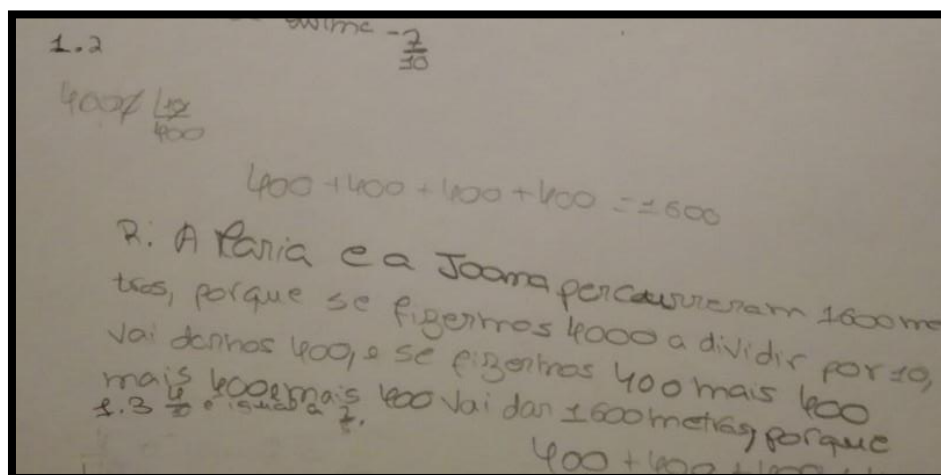 - 7/10
1.2
4000 |10
400
400 + 400 + 400 + 400 = 1600
R: A Maria e a Joana percourreram 1600 me
tros, porque se fizermos 4000 a dividir por 10,
vai darnos 400, e se fizermos 400 mais 400
mais 400 e mais 400 vai dar 1600 metros, porque
1.3 4/10 e igual a
400 + 400 + 400